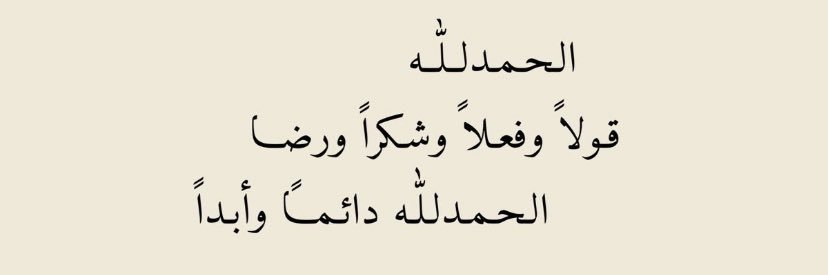 الحمدللّٰه
قولاً وفعلاً وشكراً ورضا
الحمدللّٰه دائماً وأبداً